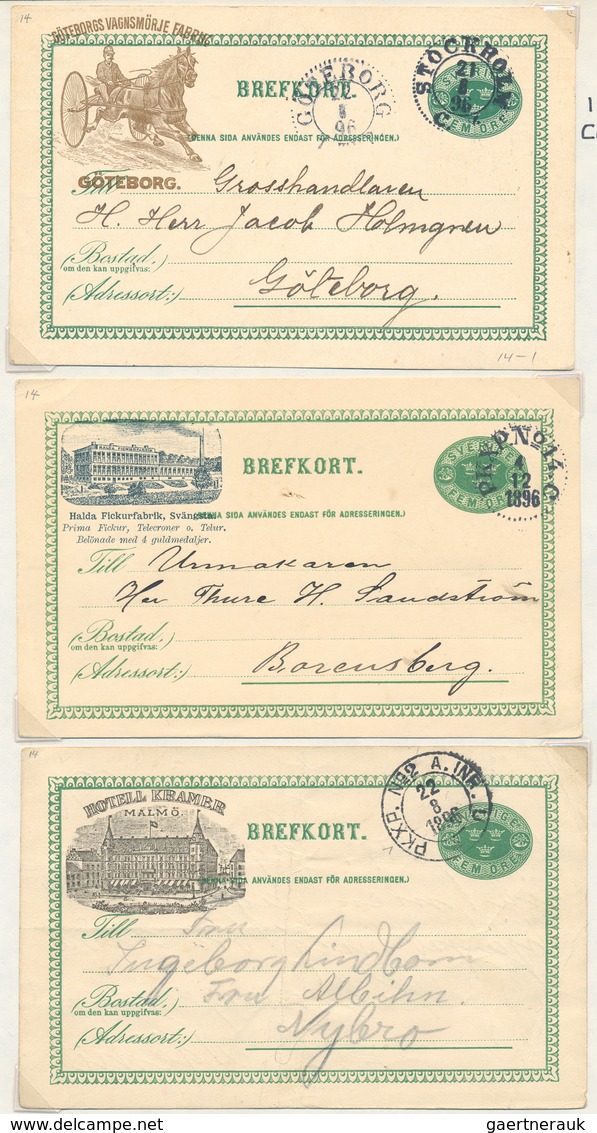 14
GÖTEBORGS VAGNSMÖRJE FABRIK
GÖTEBORG.
BREFKORT.
GÖTEBORG
96
STOCKHOLM
21
96
FEM ÖRE
(DENNA SIDA ANVÄNDES ENDAST FÖR ADRESSERINGEN.)
Till Grosshandlaren
H. Herr Jacob Holmgren
(Bostad.)
om den kan uppgifvas:
(Adressort:) Göteborg.
14-1
14
BREFKORT.
SVERIGE
FEM ÖRE
PKXP No 14 C
4
12
1896
Halda Fickurfabrik, Svängsta.
Prima Fickur, Telecroner o. Telur.
Belönade med 4 guldmedaljer.
(DENNA SIDA ANVÄNDES ENDAST FÖR ADRESSERINGEN.)
Till Urmakaren
Herr Thure H. Sandström
(Bostad.)
om den kan uppgifvas:
(Adressort:) Borensberg.
14
HOTELL KRAMER
MALMÖ.
BREFKORT.
PKXP. No 2 A. INF.
22
8
1896
FEM ÖRE
(DENNA SIDA ANVÄNDES ENDAST FÖR ADRESSERINGEN.)
Till Fru
Ingeborg Lindbom
Fru Albihn.
(Bostad.)
om den kan uppgifvas:
Nybro
(Adressort:)
www.delcampe.net
gaertnerauk